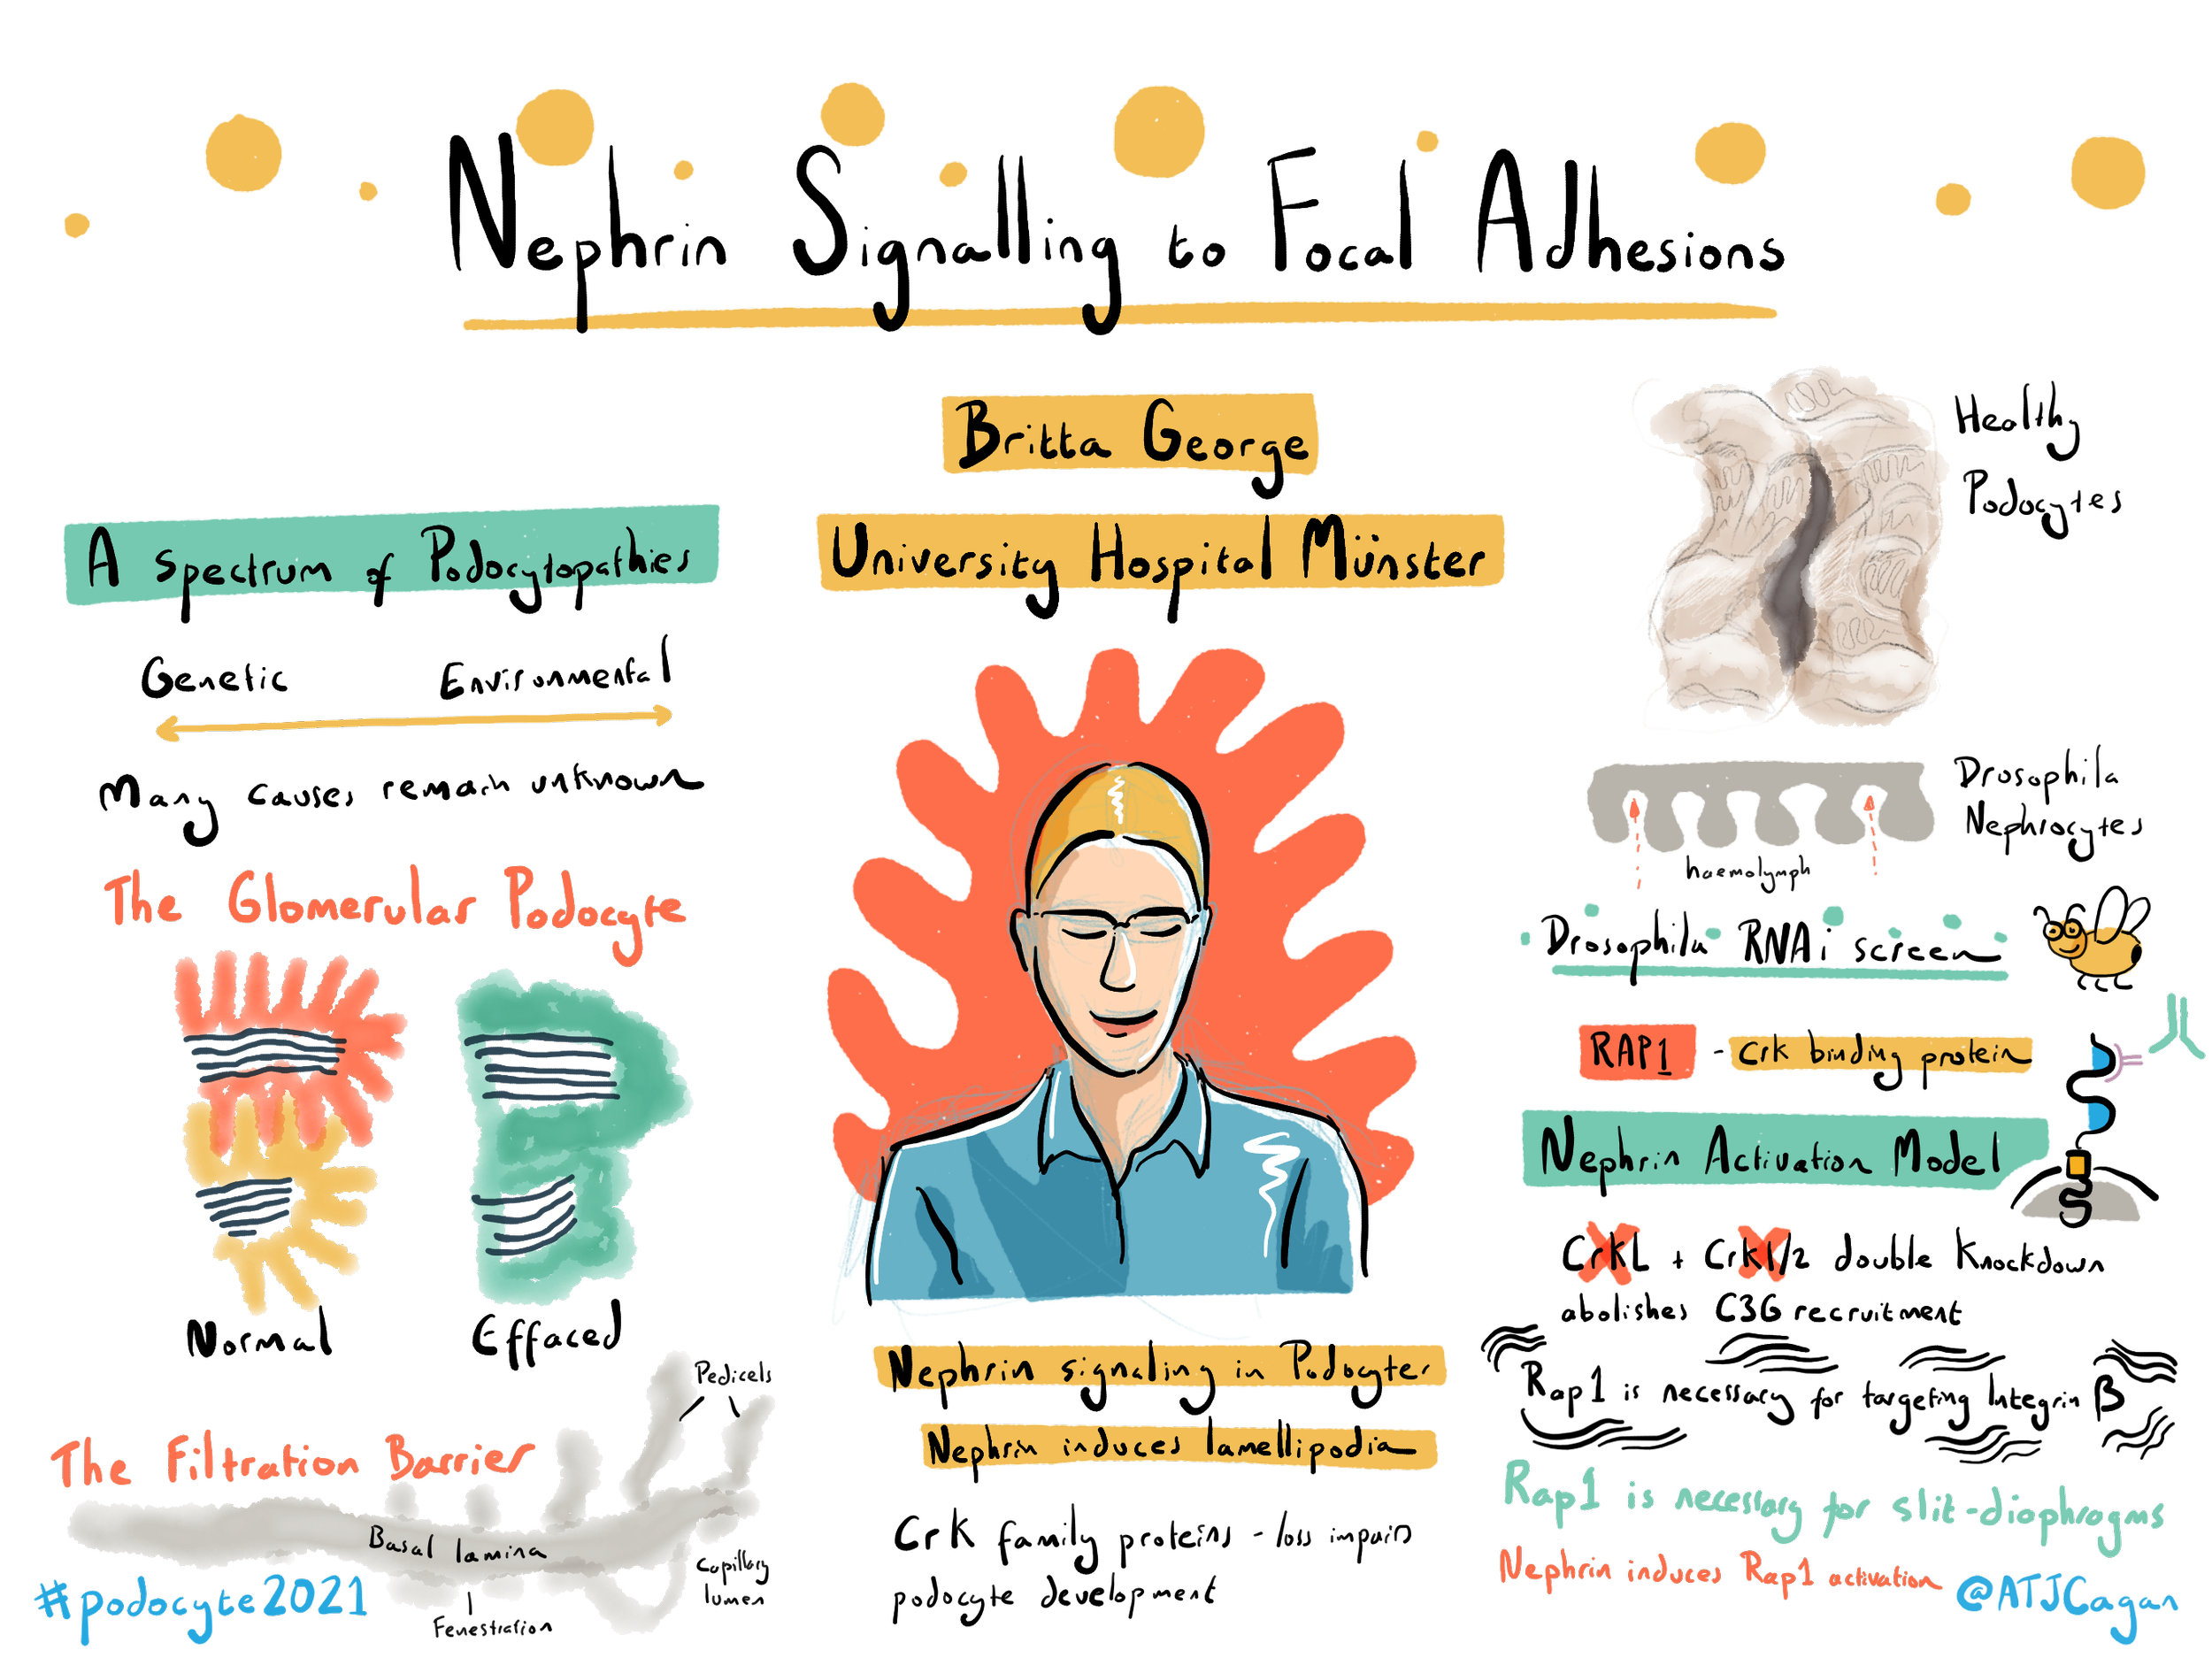 Nephrin Signalling to Focal Adhesions
Britta George
University Hospital Münster
A spectrum of Podocytopathies
Genetic Environmental
Many causes remain unknown
The Glomerular Podocyte
Normal Effaced
The Filtration Barrier
Pedicels
Basal lamina
Capillary
lumen
Fenestration
#podocyte2021
Nephrin signaling in Podocytes
Nephrin induces lamellipodia
Crk family proteins - loss impairs
podocyte development
Healthy
Podocytes
Drosophila
Nephrocytes
haemolymph
Drosophila RNAi screen
RAP1 - Crk binding protein
Nephrin Activation Model
CrkL + Crk1/2 double knockdown
abolishes C3G recruitment
Rap1 is necessary for targeting Integrin β
Rap1 is necessary for slit-diaphragms
Nephrin induces Rap1 activation
@ATJCagan